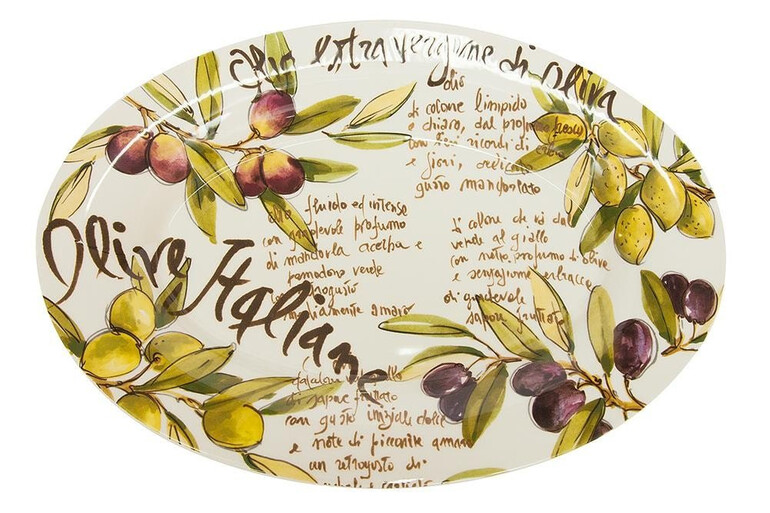 Olio extra vergine di Oliva
olio
di colore limpido
e chiaro, dal profumo fresco
con ricordi di
e fiori,
gusto mandorlato
Olive Italiane
olio fluido ed intenso
con gradevole profumo
di mandorla acerba e
pomodoro verde
con retrogusto
mediamente amaro
di colore che va dal
verde al giallo
con netto profumo di olive
e sensazione erbacea
di gradevole
sapore fruttato
di sapore fruttato
con gusto iniziale dolce
e note di piccante amaro
un retrogusto di